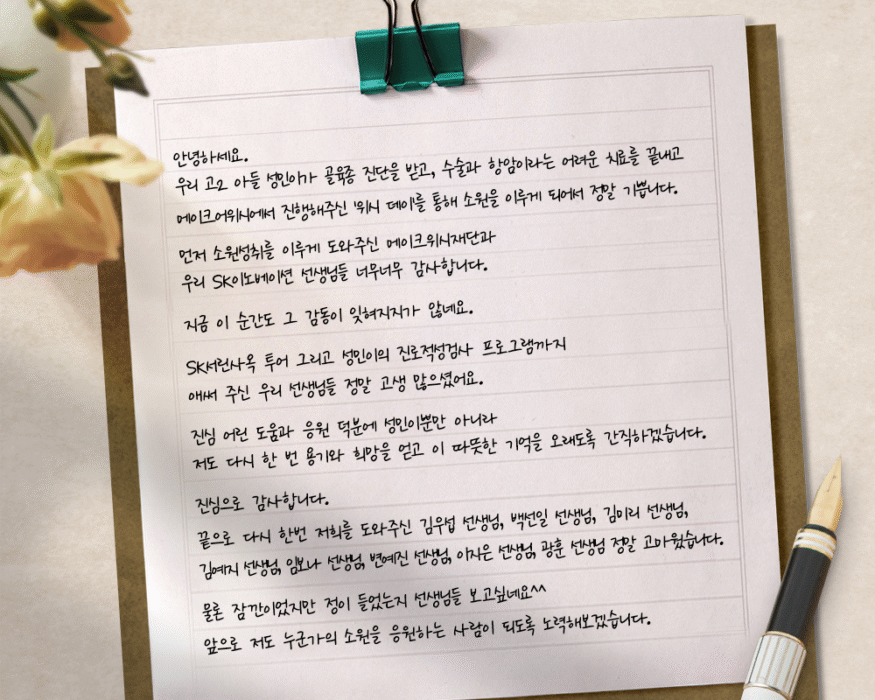 안녕하세요.
우리 고2 아들 성민이가 골육종 진단을 받고, 수술과 항암이라는 어려운 치료를 끝내고
메이크어위시에서 진행해주신 '위시 데이'를 통해 소원을 이루게 되어서 정말 기쁩니다.
먼저 소원성취를 이루게 도와주신 메이크위시재단과
우리 SK이노베이션 선생님들 너무너무 감사합니다.
지금 이 순간도 그 감동이 잊혀지지가 않네요.
SK서린사옥 투어 그리고 성민이의 진로적성검사 프로그램까지
애써 주신 우리 선생님들 정말 고생 많으셨어요.
진심 어린 도움과 응원 덕분에 성민이뿐만 아니라
저도 다시 한 번 용기와 희망을 얻고 이 따뜻한 기억을 오래도록 간직하겠습니다.
진심으로 감사합니다.
끝으로 다시 한번 저희를 도와주신 김우섭 선생님, 백선일 선생님, 김미리 선생님,
김예지 선생님, 임보나 선생님, 변예진 선생님, 이지은 선생님, 광훈 선생님 정말 고마웠습니다.
물론 잠깐이었지만 정이 들었는지 선생님들 보고싶네요^^
앞으로 저도 누군가의 소원을 응원하는 사람이 되도록 노력해보겠습니다.